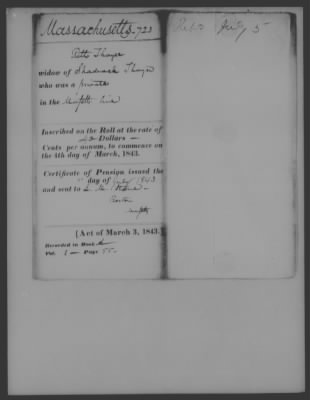 Massachusetts 723
Thayer
widow of Shadrach Thayer
who was a private
in the Line
Inscribed on the Roll at the rate of
Dollars
Cents per annum, to commence on
the 4th day of March, 1843.
Certificate of Pension issued the
day of July 1843
and sent to
Boston
[Act of March 3, 1843.
Recorded in Book A
Vol. 1 Page 55
July 5